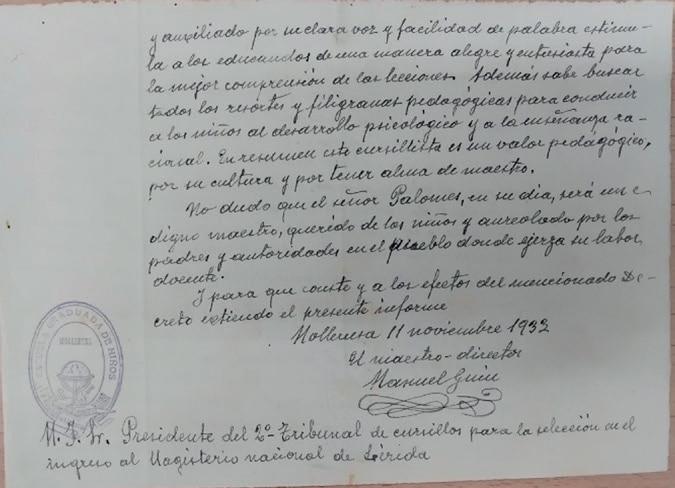 y auxiliado por su clara voz y facilidad de palabra estimu-
la a los educandos de una manera alegre y entusiasta para
la mejor comprensión de las lecciones. Además sabe buscar
todos los resortes y filigranas pedagógicas para conducir
a los niños al desarrollo psicologico y a la enseñanza ra-
cional. En resumen este cursillista es un valor pedagógico,
por su cultura y por tener alma de maestro.
No dudo que el señor Palomes, en su dia, será un
digno maestro, querido de los niños y aureolado por los
padres y autoridades en el pueblo donde ejerza su labor
docente.
Y para que conste y a los efectos del mencionado De-
creto extiendo el presente informe
Mollerusa 11 noviembre 1932
El maestro-director
Manuel
GRADUADA DE NIÑOS
MOLLERUSA
M. I. Sr. Presidente del 2º Tribunal de cursillos para la selección en el
ingreso al Magisterio nacional de Lérida